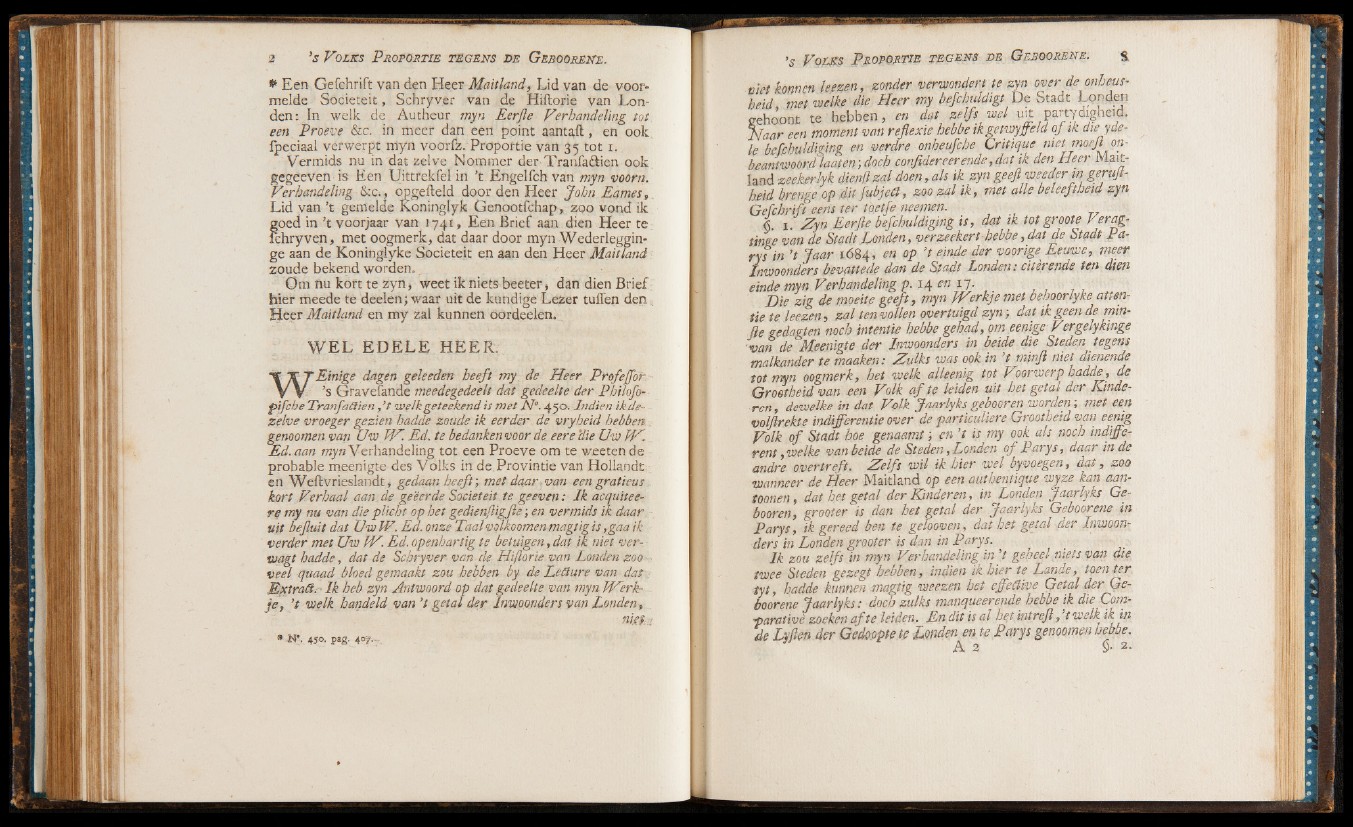 2 's VOLKS PROPORTIE TEGENS DE GEBOORENE.
* Een Geſchrift van den Heer Maitland, Lid van de voor-
melde Societeit, Schryver van de Hiſtorie van Lon-
den: In welk de Autheur myn Eerſte Verhandeling tot
een Proeve &c. in meer dan een point aantaſt, en ook
ſpeciaal verwerpt myn voorſz. Proportie van 35 tot 1.
Vermids nu in dat zelve Nommer der Tranſactien ook
gegeeven is Een Uittrekſel in 't Engelſch van myn voorn.
Verhandeling &c., opgeſteld door den Heer John Eames,
Lid van 't gemelde Koninglyk Genootſchap, zoo vond ik
goed in 't voorjaar van 1741, Een Brief aan dien Heer te
ſchryven, met oogmerk, dat daar door myn Wederleggin-
ge aan de Koninglyke Societeit en aan den Heer Maitland
zoude bekend worden.
Om nu kort te zyn, weet ik niets beeter, dan dien Brief
hier meede te deelen; waar uit de kundige Lezer tuſſen den
Heer Maitland en my zal kunnen oordeelen.
WEL EDELE HEER.
WEinige dagen geleeden heeft my de Heer Profeſſor
's Graveſande meedegedeelt dat gedeelte der Philoſo-
piſche Tranſactien, 't welk geteekend is met N°. 450. Indien ik de-
zelve vroeger gezien hadde zoude ik eerder de vryheid hebben
genoomen van Uw W. Ed. te bedanken voor de eere die Uw W.
Ed. aan myn Verhandeling tot een Proeve om te weeten de
probable meenigte des Volks in de Provintie van Hollandt
en Weſtvrieslandt, gedaan heeft; met daar van een gratieus
kort Verhaal aan de geëerde Societeit te geeven: Ik acquitee-
re my nu van die plicht op het gedienſtigſte; en vermids ik daar
uit beſluit dat Uw W. Ed. onze Taal volkoomen magtig is, gaa ik
verder met Uw W. Ed. openhartig te betuigen, dat ik niet ver-
wagt hadde, dat de Schryver van de Hiſtorie van Londen zoo
veel quaad bloed gemaakt zou hebben by de Lecture van dat
Extract. Ik heb zyn Antwoord op dat gedeelte van myn Werk-
je, 't welk handeld van 't getal der Inwoonders van Londen,
niet
* N°. 450. pag. 407.
's VOLKS PROPORTIE TEGENS DE GEBOORENE. 3
niet konnen leezen, zonder verwondert te zyn over de onheus-
heid, met welke die Heer my beſchuldigt De Stadt Londen
gehoont te hebben, en dat zelfs wel uit partydigheid.
Naar een moment van reflexie hebbe ik getwyffeld of ik die yde-
le beſchuldiging en verdre onheuſche Critique niet moeſt on-
beantwoord laaten; doch conſidereerende, dat ik den Heer Mait-
land zeekerlyk dienſt zal doen, als ik zyn geeſt weeder in geruſt-
heid brenge op dit ſubject, zoo zal ik, met alle beleeftheid zyn
Geſchrift eens ter toetſe neemen.
§. 1. Zyn Eerſte beſchuldiging is, dat ik tot groote Verag-
tinge van de Stadt Londen, verzeekert hebbe, dat de Stadt Pa-
rys in 't Jaar 1684, en op 't einde der voorige Eeuwe, meer
Inwoonders bevattede dan de Stadt Londen: citèrende ten dien
einde myn Verhandeling p. 14 en 17.
Die zig de moeite geeft, myn Werkje met behoorlyke atten-
tie te leezen, zal ten vollen overtuigd zyn; dat ik geen de min-
ſte gedagten noch intentie hebbe gehad, om eenige Vergelykinge
van de Meenigte der Inwoonders in beide die Steden tegens
malkander te maaken: Zulks was ook in 't minſt niet dienende
tot myn oogmerk, het welk alleenig tot Voorwerp hadde, de
Grootheid van een Volk af te leiden uit het getal der Kinde-
ren, dewelke in dat Volk Jaarlyks gebooren worden; met een
volſtrekte indifferentie over de particuliere Grootheid van eenig
Volk of Stadt hoe genaamt; en 't is my ook als noch indiffe-
rent, welke van beide de Steden, Londen of Parys, daar in de
andre overtreft. Zelfs wil ik hier wel byvoegen, dat, zoo
wanneer de Heer Maitland op een authentique wyze kan aan-
toonen, dat het getal der Kinderen, in Londen Jaarlyks Ge-
booren, grooter is dan het getal der Jaarlyks Geboorene in
Parys, ik gereed ben te gelooven, dat het getal der Inwoon-
ders in Londen grooter is dan in Parys.
Ik zou zelfs in myn Verhandeling in 't geheel niets van die
twee Steden gezegt hebben, indien ik hier te Lande, toen ter
tyt, hadde kunnen magtig weezen het effective Getal der Ge-
boorene Jaarlyks: doch zulks manqueerende hebbe ik die Com-
parative zoeken af te leiden. En dit is al het intreſt, 't welk ik in
de Lyſten der Gedoopte te Londen en te Parys genoomen hebbe.
A 2 §. 2.